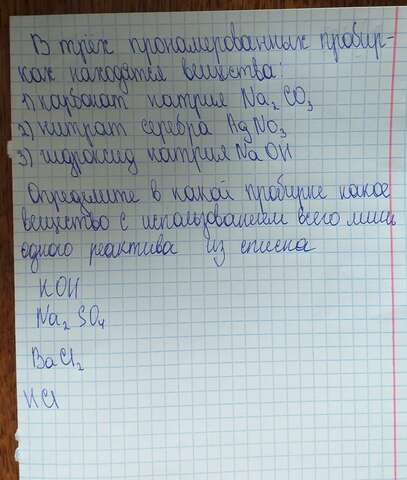 В трёх пронумерованных пробир-
ках находятся вещества:
1) карбонат натрия Na2CO3
2) нитрат серебра AgNO3
3) гидроксид натрия NaOH
Определите в какой пробирке какое
вещество с использованием всего лишь
одного реактива из списка
KOH
Na2SO4
BaCl2
HCl